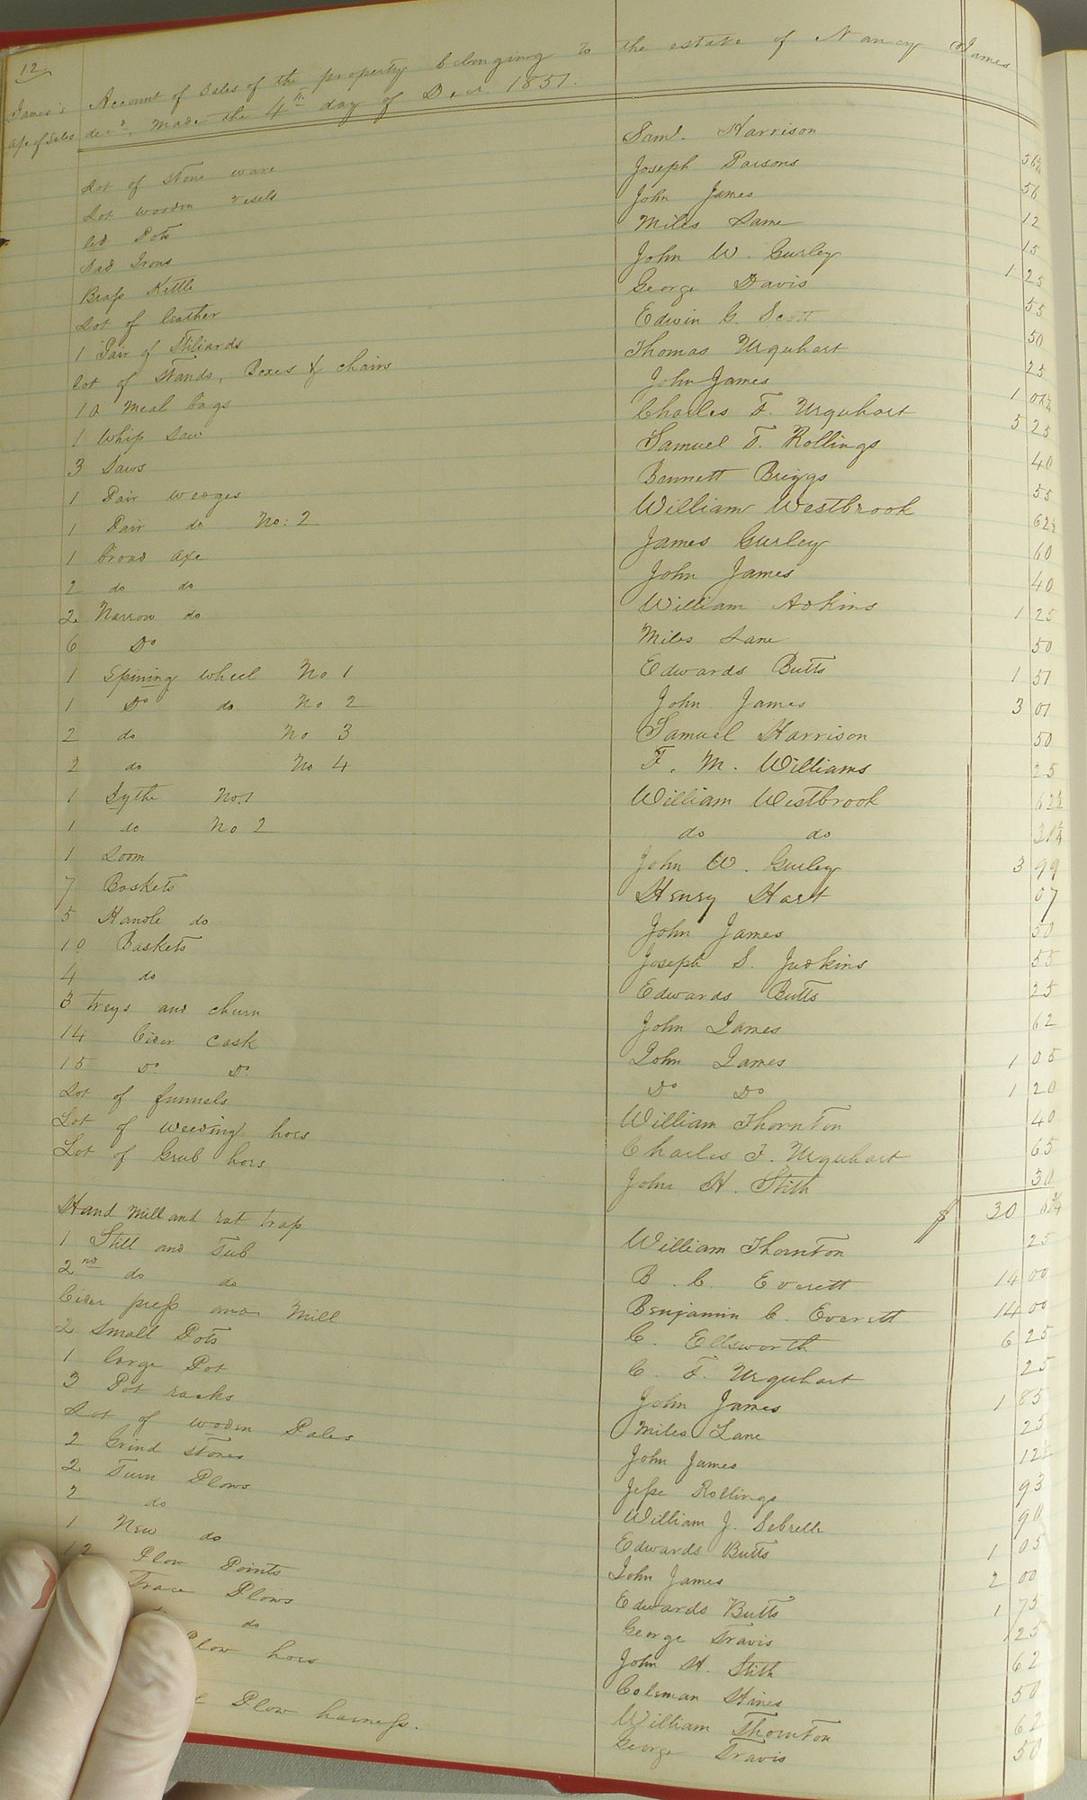 12
James's
Account of Sales of the property belonging to the estate of Nancy James
a/c of Sales
decd. Made the 4th day of Decr. 1851.
Lot of Stone ware Saml. Harrison 36½
Lot wooden vesels Joseph Parsons 56
old Pots John James 12
Sad Irons Miles Lane 15
Brass Kettle John W. Gurley 1 25
Lot of leather George Davis 55
1 Pair of Stiliards Edwin G. Scott 50
lot of Stands, Boxes & chains Thomas Urquhart 25
10 Meal bags John James 1
1 Whip Saw Charles F. Urquhart 5 25
3 Saws Samuel T. Rollings 40
1 Pair wedges Bennett Briggs 55
1 Pair do No: 2 William Westbrook 62½
1 broad axe James Gurley 60
2 do do John James 40
2 Narrow do William Adkins 1 25
6 Do Miles Lane 50
1 Spining wheel No 1 Edwards Butts 1 51
1 Do do No 2 John James 3 01
2 do No 3 Samuel Harrison 50
2 do No 4 F. M. Williams 25
1 Sythe No.1 William Westbrook 62½
1 do No 2 do do 31¼
1 Loom John W. Gurley 3 99
7 Baskets Henry Hart 07
5 Handle do John James 50
10 Baskets Joseph S. Judkins 55
4 do Edwards Butts 25
3 treys and churn John James 62
14 Cider Cask John James 1 05
15 Do Do Do Do 1 20
Lot of funnels William Thornton 40
Lot of weeding hoes Charles F. Urquhart 65
Lot of Grub hoes John H. Stith 30
$ 30
Hand Mill and rat trap William Thornton 25
1 Still and Tub B. C. Everett 14 00
2nd do do Benjamin C. Everett 14 00
Cider press and Mill C. Ellsworth 6 25
2 Small Pots C. F. Urquhart 25
1 large Pot John James 1 85
3 Pot racks Miles Lane 25
Lot of wooden Pales John James 12½
2 Grind Stones Jesse Rollings 93
2 Turn Plows William J. Sebrelle 90
2 do Edwards Butts 1 05
1 New do John James 2 00
12 Plow Points Edwards Butts 1 75
Trace Plows George Travis 1 25
do John H. Stith 62
Plow hoes Coleman Hines 50
William Thornton 62
Plow harness. George Travis 50